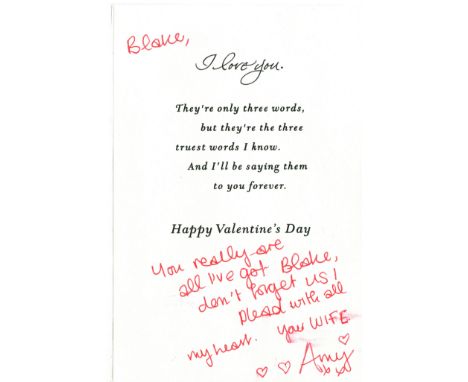 Blake,
I love you.
They're only three words,
but they're the three
truest words I know.
And I'll be saying them
to you forever.
Happy Valentine's Day
You really are
all I've got Blake,
don't forget us!
Plead with all
my heart. your WIFE
Amy
xx